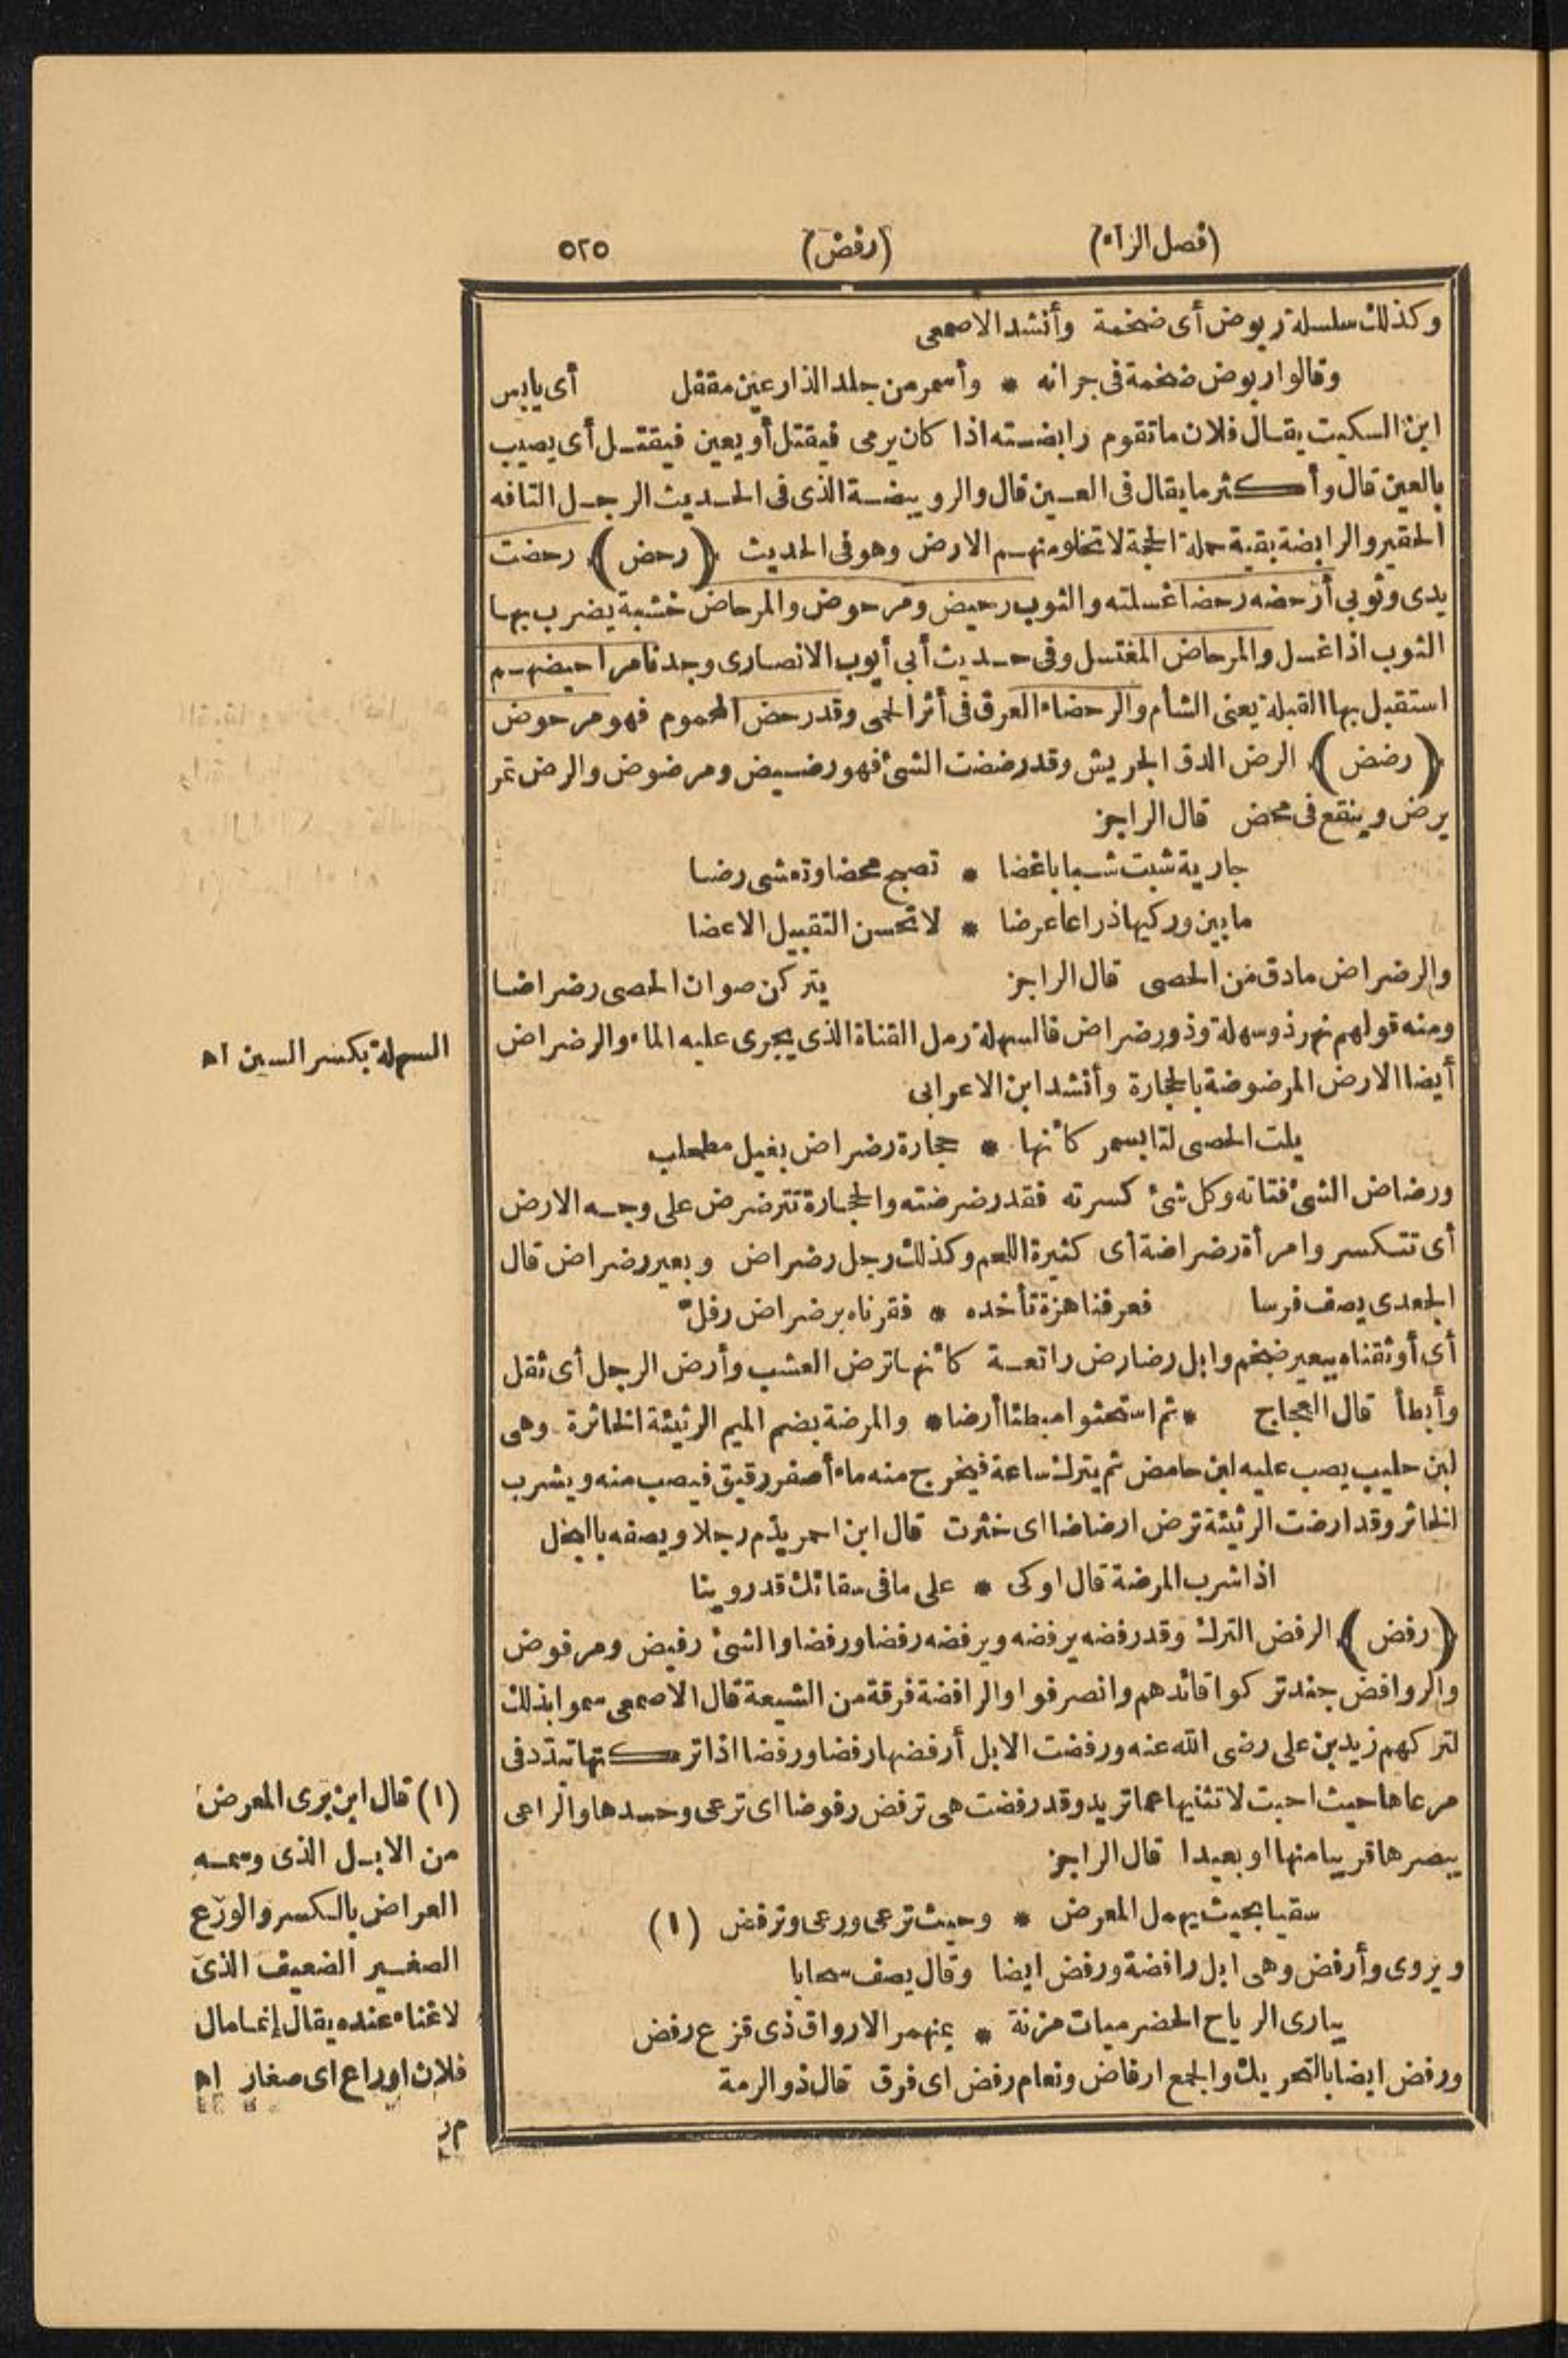 (فصل الراء)
(رفض)
٥٢٥
وكذلك سلسلة ربوض أى ضخمة وأنشد الاصمعى
وقالوا ربوض ضخمة فى جرانه * وأسمر من جلد الذراعين مقفل أى يابس
ابن السكيت يقال فلان ما تقوم رابضته اذا كان يرمى فيقتل أو يعين فيقتل أى يصيب
بالعين قال وأكثر ما يقال فى العين قال والرويبضة الذى فى الحديث الرجل التافه
الحقير والرابضة بقية حملة الحجة لا تخلو منهم الارض وهو فى الحديث (رحض) رحضت
يدى وثوبى أرحضه رحضا غسلته والثوب رحيض ومرحوض والمرحاض خشبة يضرب بها
الثوب اذا غسل والمرحاض المغتسل وفى حديث أبى أيوب الانصارى وجدنا مراحيضهم
استقبل بها القبلة يعنى الشأم والرحضاء العرق فى أثر الحمى وقد رحض المحموم فهو مرحوض
(رضض) الرض الدق الجريش وقد رضضت الشئ فهو رضيض ومرضوض والرض تمر
يرض وينقع فى محض قال الراجز
جارية شبت شبابا غضا * تصبح محضا وتعشى رضا
ما بين وركيها ذراعا عرضا * لا تحسن التقبيل الا عضا
والرضراض ما دق من الحصى قال الراجز يتركن صوان الحصى رضراضا
ومنه قولهم نهر ذو سهلة وذو رضراض فالسهلة رمل القناة الذى يجرى عليه الماء والرضراض
أيضا الارض المرضوضة بالحجارة وأنشد ابن الاعرابى
يلت الحصى لتا بسمر كأنها * حجارة رضراض بغيل مطحلب
ورضاض الشئ فتاته وكل شئ كسرته فقد رضرضته والحجارة تترضرض على وجه الارض
أى تتكسر وامرأة رضراضة أى كثيرة اللحم وكذلك رجل رضراض وبعير رضراض قال
الجعدى يصف فرسا فعرفنا هزة تأخذه * فقرناه برضراض رفلّ
أى أوثقناه ببعير ضخم وابل رضارض راتعة كأنها ترض العشب وأرض الرجل أى ثقل
وأبطأ قال العجاج * ثم استحثوا مبطئا أرضا * والمرضة بضم الميم الرثيئة الخاثرة وهى
لبن حليب يصب عليه لبن حامض ثم يترك ساعة فيخرج منه ماء أصفر رقيق فيصب منه ويشرب
الخاثر وقد ارضت الرثيئة ترض ارضاضا اى خثرت قال ابن احمر يذم رجلا ويصفه بالبخل
اذا شرب المرضة قال اوكى * على ما فى سقائك قد روينا
(رفض) الرفض الترك وقد رفضه يرفضه ويرفضه رفضا ورفضا والشئ رفيض ومرفوض
والروافض جند تركوا قائدهم وانصرفوا والرافضة فرقة من الشيعة قال الاصمعى سموا بذلك
لتركهم زيد بن على رضى الله عنه ورفضت الابل أرفضها رفضا ورفضا اذا تركتها تبدّد فى
مرعاها حيث احبت لا تثنيها عما تريد وقد رفضت هى ترفض رفوضا اى ترعى وحدها والراعى
يبصرها قريبا منها او بعيدا قال الراجز
سقيا بحيث يهمل المعرض * وحيث ترعى ورعى وترفض (١)
ويروى وأرفض وهى ابل رافضة ورفض ايضا وقال يصف سحابا
يبارى الرياح الحضرميات مزنة * بمنهمر الارواق ذى قزع رفض
ورفض ايضا بالتحريك والجمع ارفاض ونعام رفض اى فرق قال ذو الرمة
السهلة بكسر السين اه
(١) قال ابن برى المعرض
من الابل الذى وسمه
العراض بالكسر والورَع
الصغير الضعيف الذى
لا غناء عنده يقال إنما مال
فلان اوراع اى صغار اه
م ر